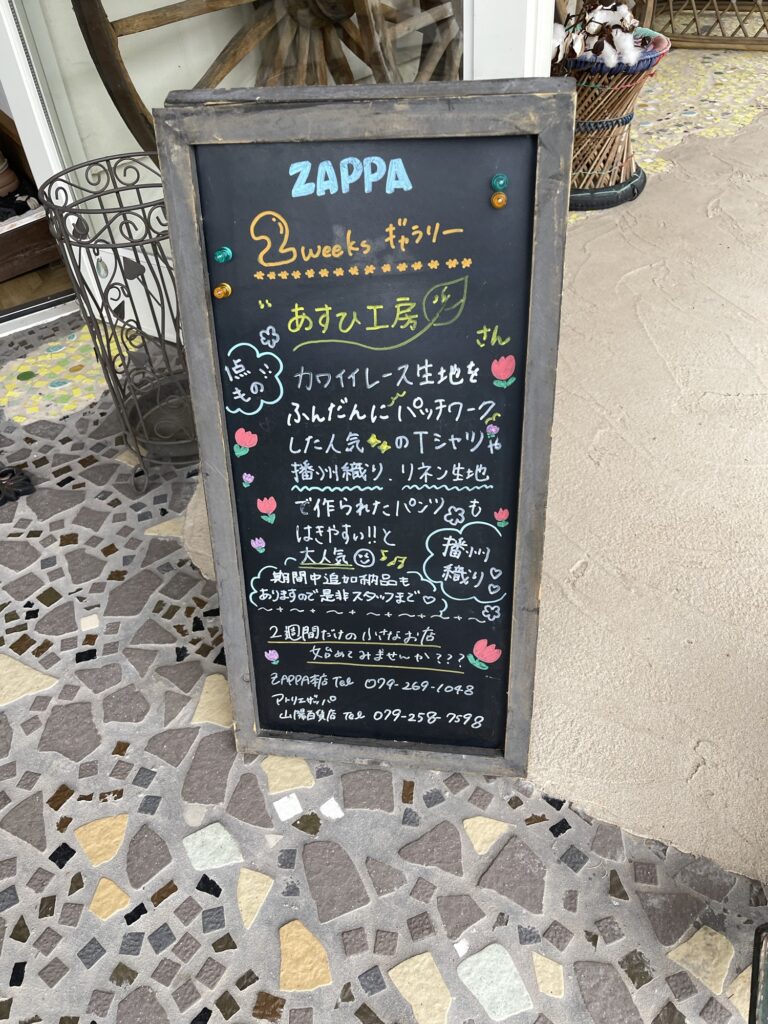 ZAPPA
2weeks ギャラリー
あすひ工房
さん
1点
もの
カワイイレース生地を
ふんだんにパッチワーク
した人気のTシャツや
播州織り、リネン生地
で作られたパンツも
はきやすい!!と
大人気
播州
織り
期間中追加納品も
ありますので是非スタッフまで♡
2週間だけの小さなお店
始めてみませんか???
ZAPPA本店 Tel 079-269-1048
アトリエザッパ
山陽百貨店 Tel 079-258-7598